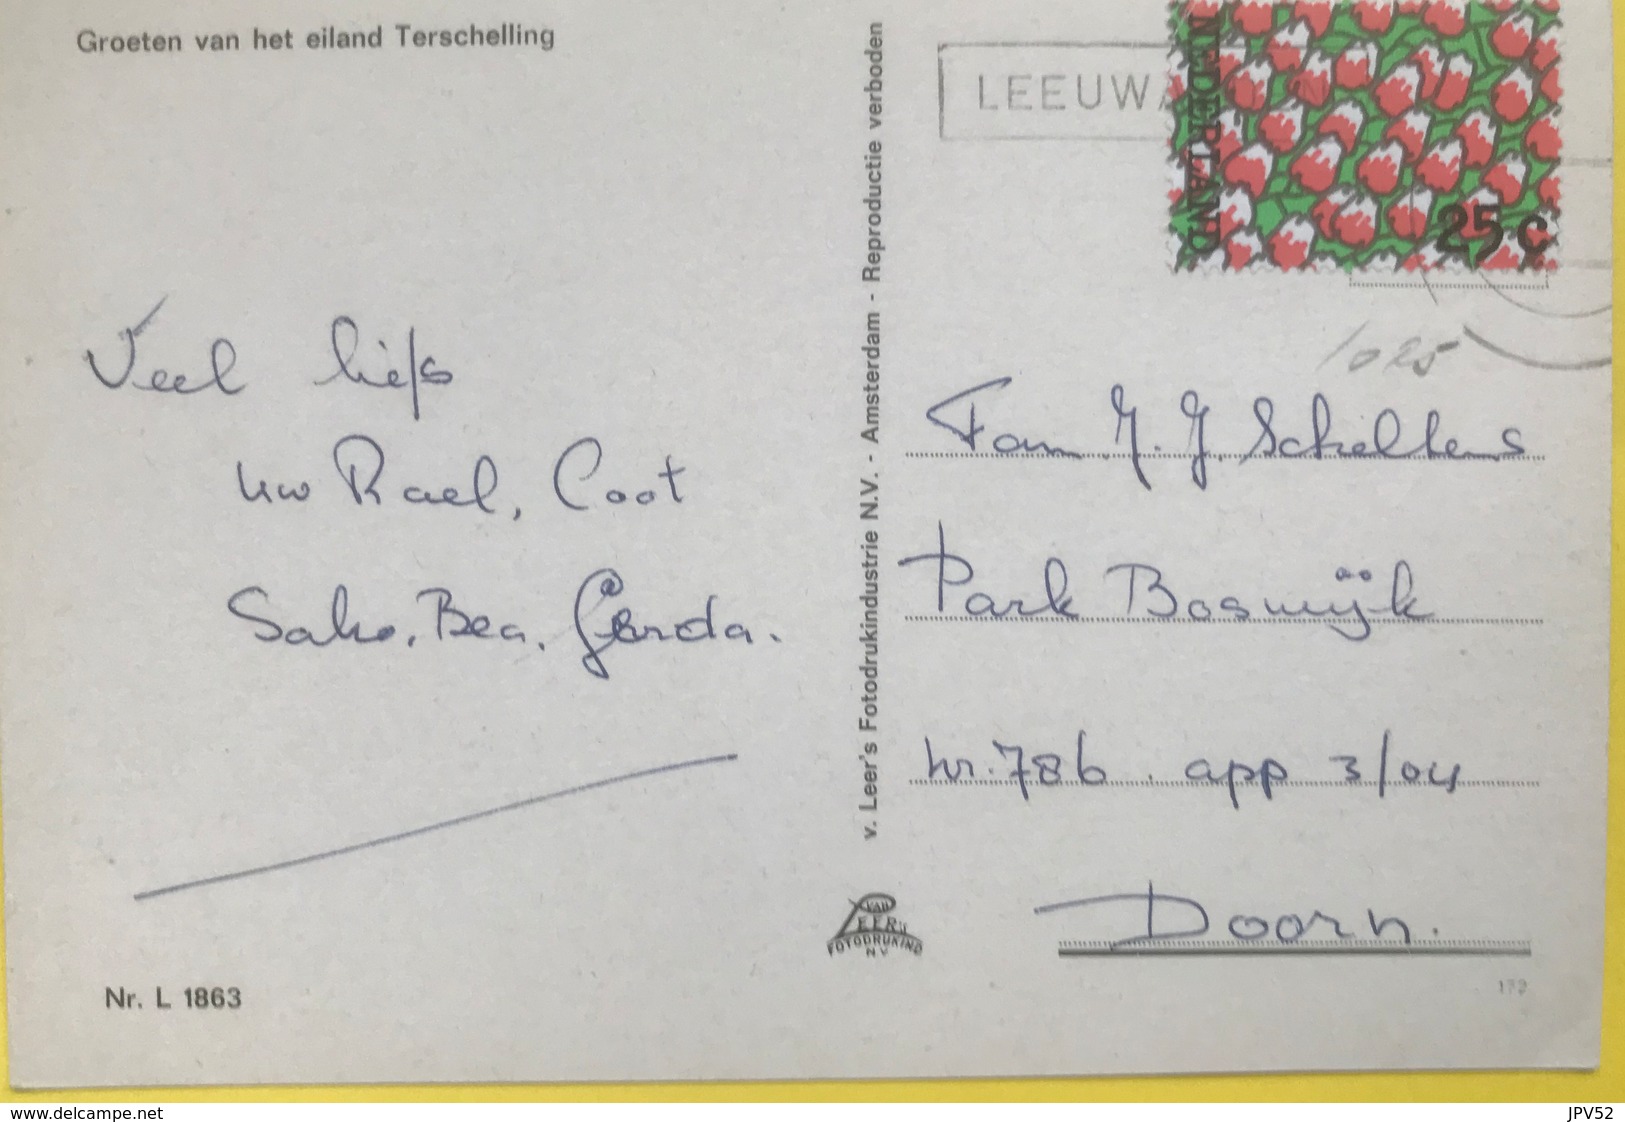 Groeten van het eiland Terschelling
Veel liefs
uw Rael, Coot
Sako, Bea, Gerda.
Nr. L 1863
v. Leer's Fotodrukindustrie N.V. - Amsterdam - Reproductie verboden
VAN
LEER'S
FOTODRUKIND
N.V.
LEEUWA
NEDERLAND
25 c
1025
Fam. J. Scheltens
Park Boswijk
nr. 786. app 3/04
Doorn.
172
www.delcampe.net
JPV52